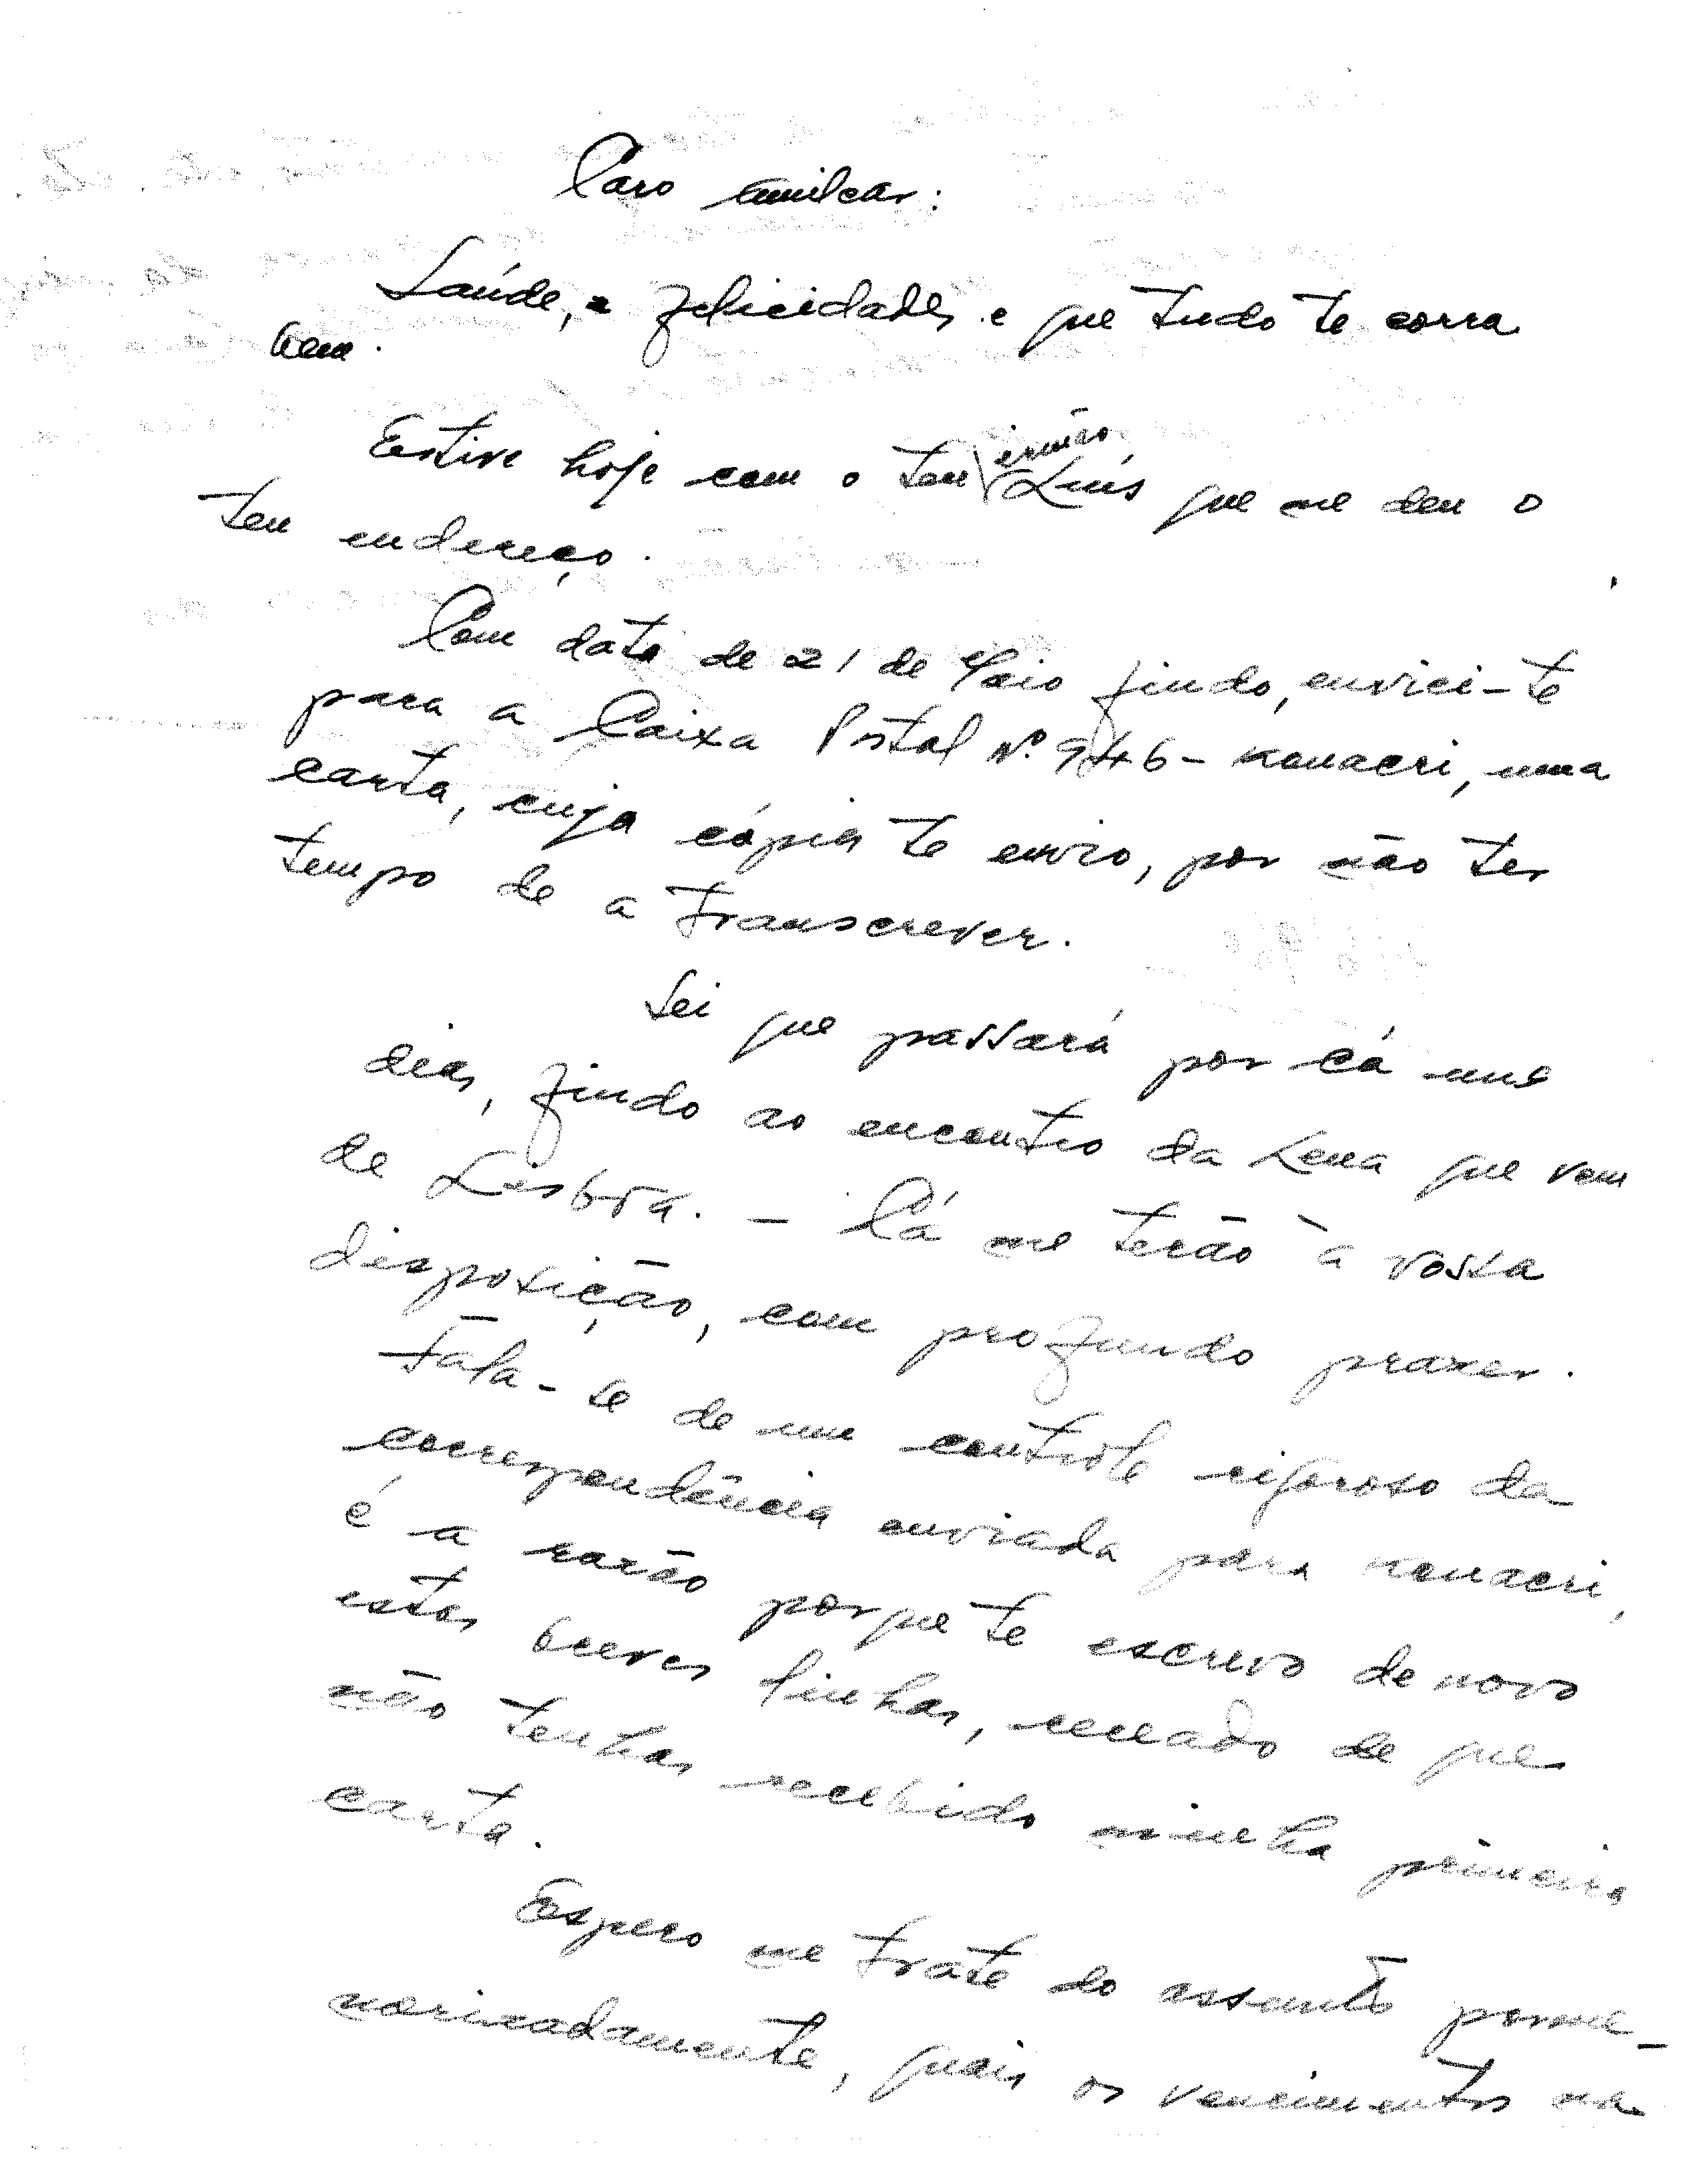 Caro Amilcar:
Saúde, e felicidades e que tudo te corra
bem.
Estive hoje com o teu irmão Luís que me deu o
teu endereço.
Com data de 21 de Maio findo, enviei-te
para a Caixa Postal Nº 946 - Konacri, uma
carta, cuja cópia te envio, por não ter
tempo de a transcrever.
Sei que passará por cá uns
dias, findo ao encontro da Lena que vem
de Lisboa. - Cá me terão à vossa
disposição, com profundo prazer.
Fala-se de um contrôle rigoroso da
correspondência enviada para Konacri,
é a razão porque te escrevo de novo
estas breves linhas, receado de que
não tenhas recebido minha primeira
carta.
Espero me trate do assunto porme-
norizadamente, quais os vencimentos na